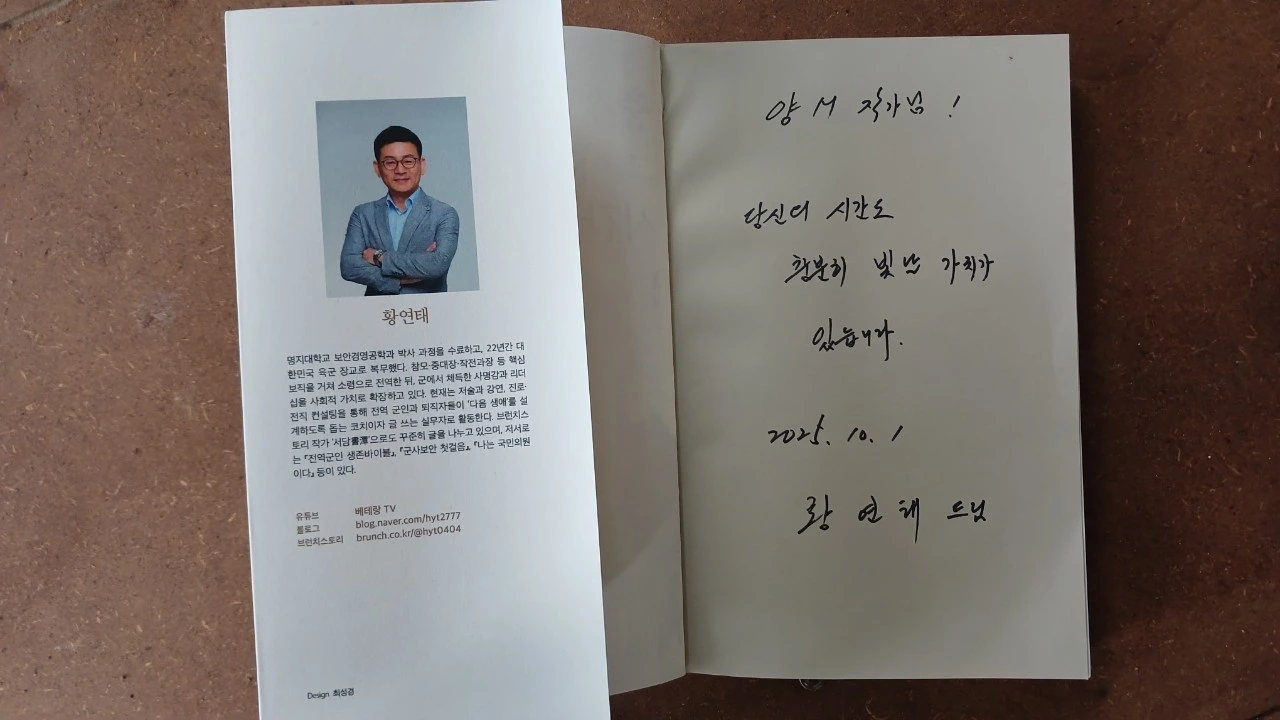 황연태
명지대학교 보안경영공학과 박사 과정을 수료하고, 22년간 대
한민국 육군 장교로 복무했다. 참모·중대장·작전과장 등 핵심
보직을 거쳐 소령으로 전역한 뒤, 군에서 체득한 사명감과 리더
십을 사회적 가치로 확장하고 있다. 현재는 저술과 강연, 진로·
전직 컨설팅을 통해 전역 군인과 퇴직자들이 '다음 생애'를 설
계하도록 돕는 코치이자 글 쓰는 실무자로 활동한다. 브런치스
토리 작가 '서담書潭'으로도 꾸준히 글을 나누고 있으며, 저서로
는 『전역군인 생존바이블』, 『군사보안 첫걸음』, 『나는 국민의원
이다』 등이 있다.
유튜브 베테랑 TV
블로그 blog.naver.com/hyt2777
브런치스토리 brunch.co.kr/@hyt0404
Design 최성경
양서 작가님!
당신의 시간도
충분히 빛날 가치가
있습니다.
2025. 10. 1
황연태 드림